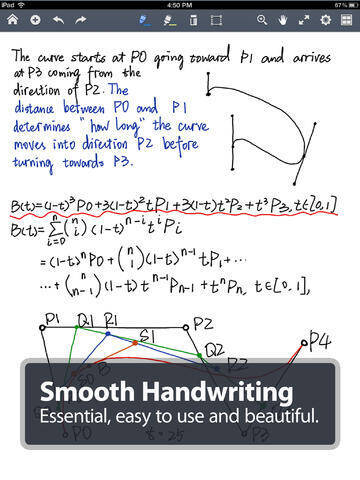 iPad
4:50 PM
67%
The curve starts at P0 going toward P1 and arrives
at P3 coming from the
direction of P2. The
distance between P0 and P1
determines "how long" the curve
moves into direction P2 before
turning towards P3.
B(t)=(1-t)³P0+3(1-t)²tP1+3(1-t)t²P2+t³P3, t∈[0,1]
B(t)=∑ⁿᵢ₌₀(ⁿᵢ)(1-t)ⁿ⁻ⁱtⁱPi
=(1-t)ⁿP0+(ⁿ₁)(1-t)ⁿ⁻¹tP1+⋯
⋯+(ⁿₙ₋₁)(1-t)tⁿ⁻¹Pn-1+tⁿPn, t∈[0,1],
P1 Q1 R1 P2
S1
P4
Q2
B
R2
Smooth Handwriting
Essential, easy to use and beautiful.
P0
t=.25
P3